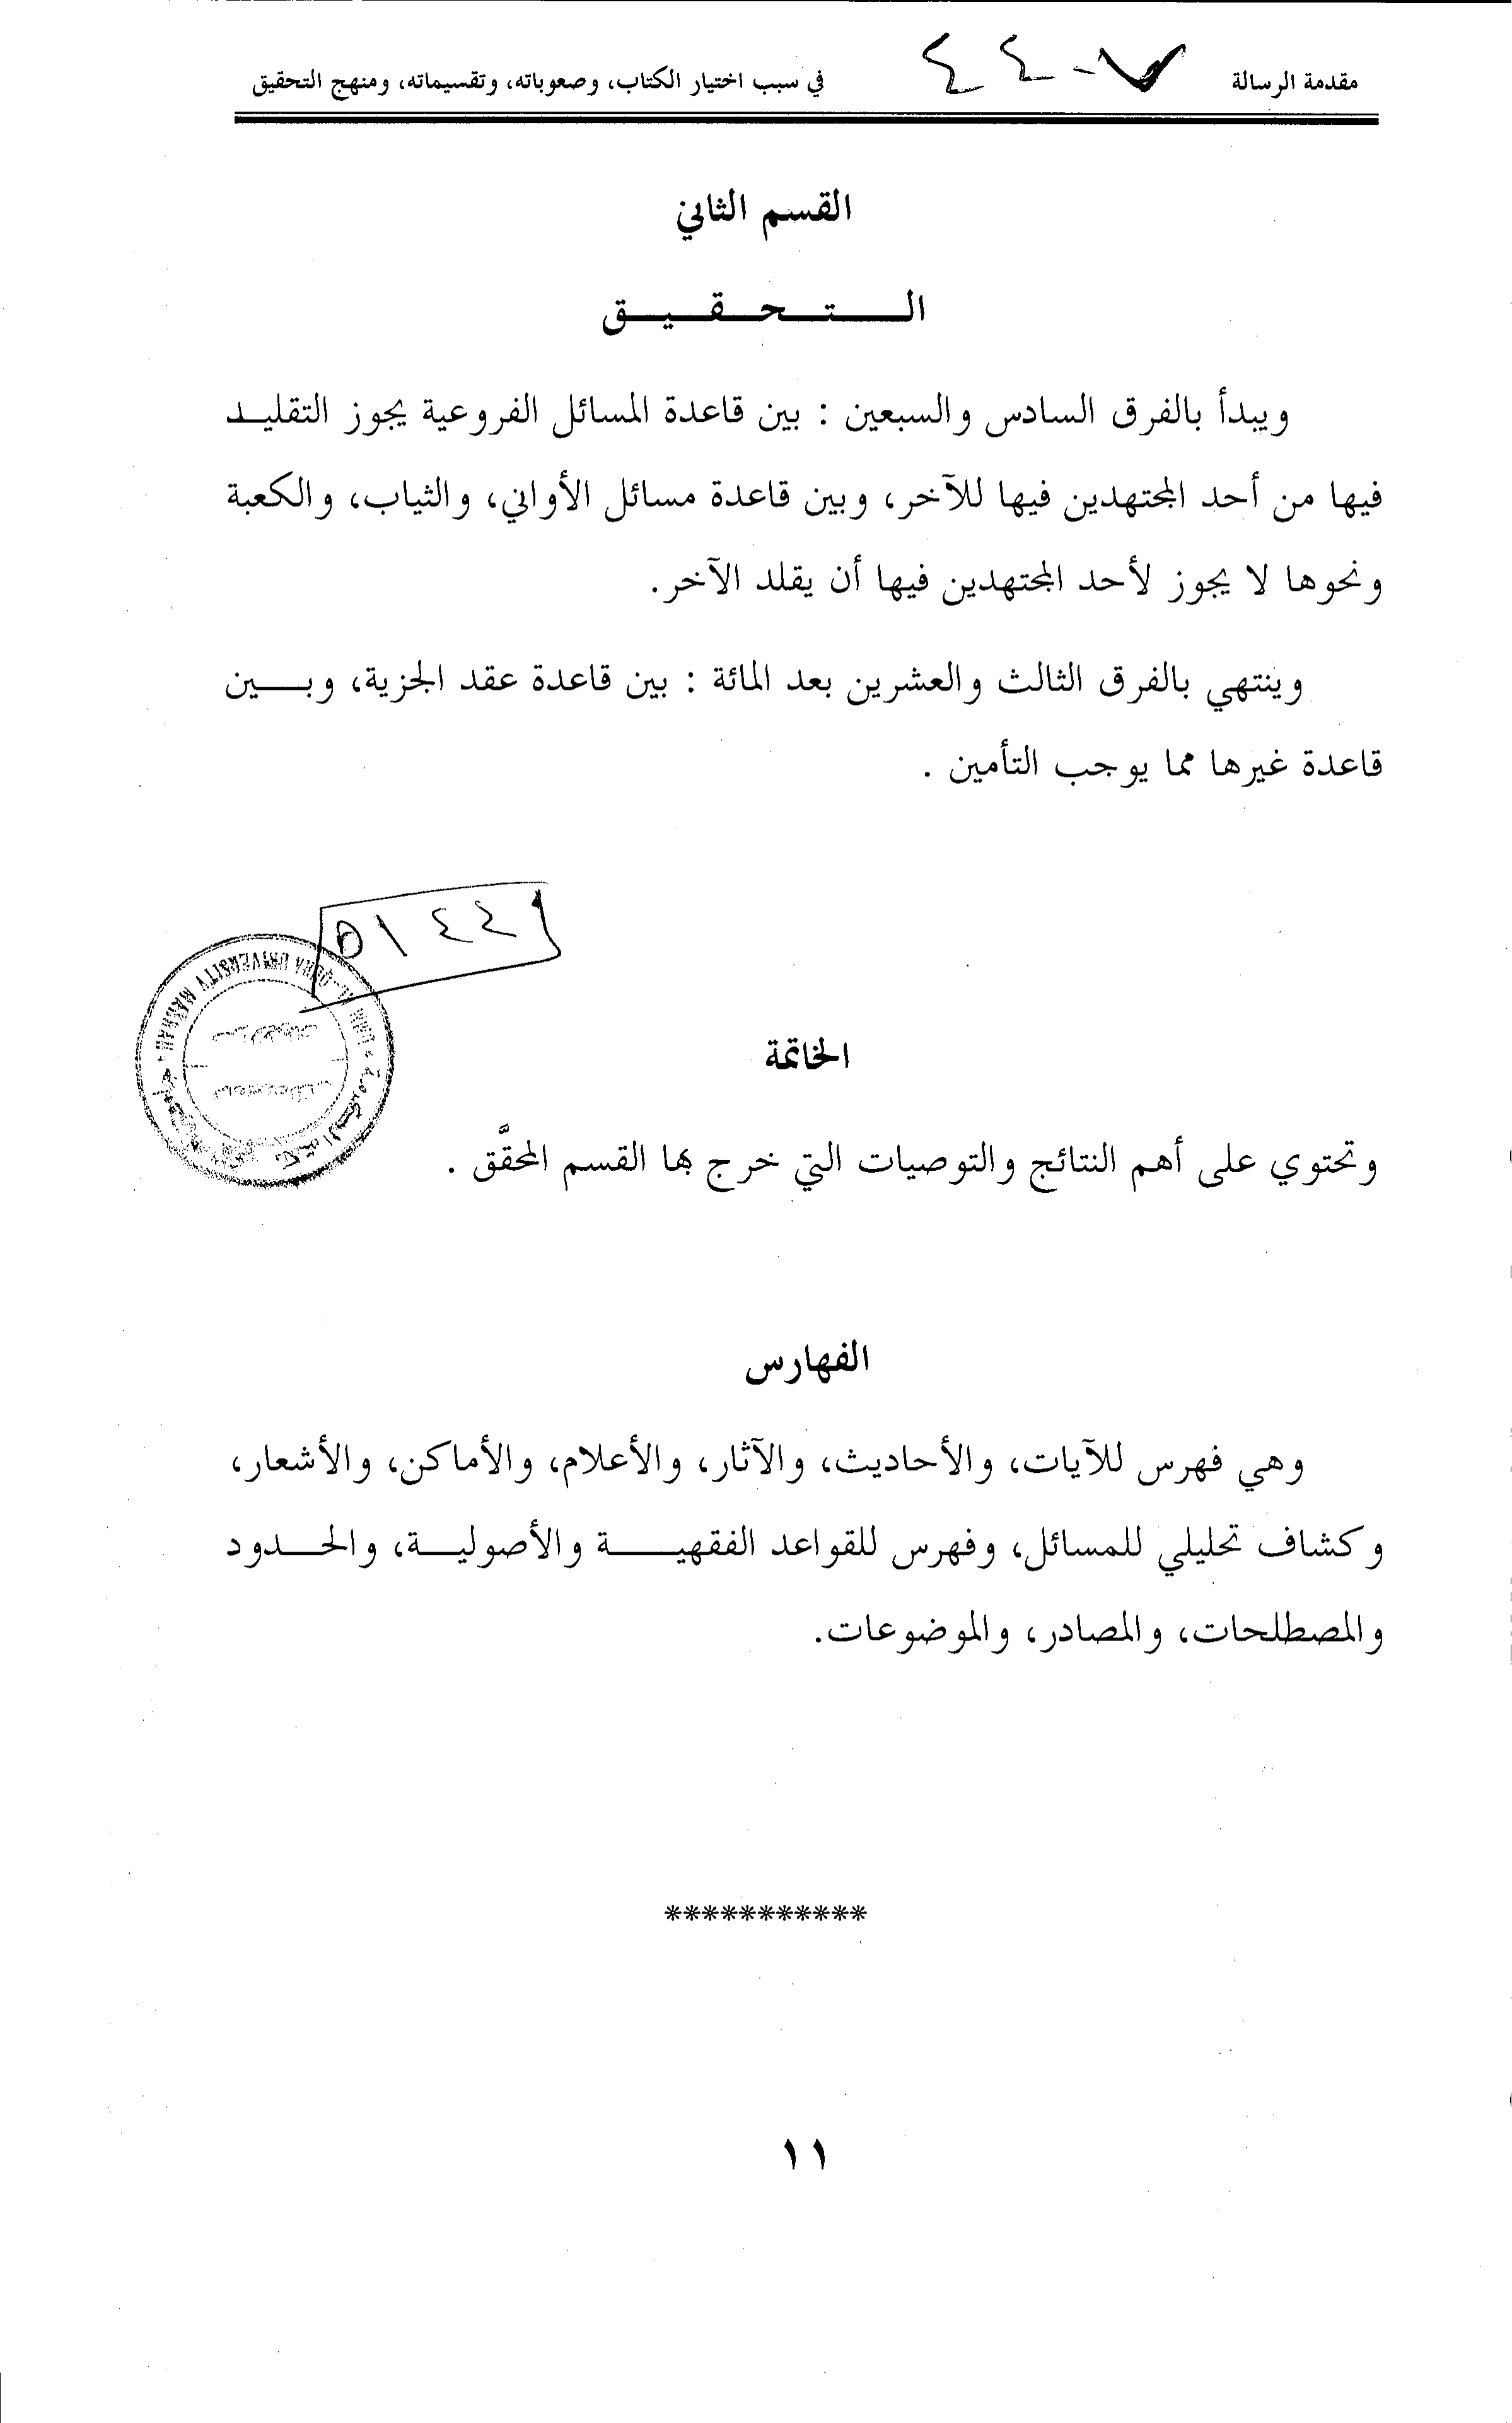 مقدمة الرسالة في سبب اختيار الكتاب، وصعوباته، وتقسيماته، ومنهج التحقيق
القسم الثاني
الـــتـــحـــقـــيـــق
ويبدأ بالفرق السادس والسبعين : بين قاعدة المسائل الفروعية يجوز التقليـد
فيها من أحد المجتهدين فيها للآخر، وبين قاعدة مسائل الأواني، والثياب، والكعبة
ونحوها لا يجوز لأحد المجتهدين فيها أن يقلد الآخر.
وينتهي بالفرق الثالث والعشرين بعد المائة : بين قاعدة عقد الجزية، وبـــين
قاعدة غيرها مما يوجب التأمين .
٥١٤٤
UNIVERSITY MAKKAH
الخاتمة
وتحتوي على أهم النتائج والتوصيات التي خرج بها القسم المحقَّق .
الفهارس
وهي فهرس للآيات، والأحاديث، والآثار، والأعلام، والأماكن، والأشعار،
وكشاف تحليلي للمسائل، وفهرس للقواعد الفقهيـــة والأصوليـــة، والحـــدود
والمصطلحات، والمصادر، والموضوعات.
***********
١١